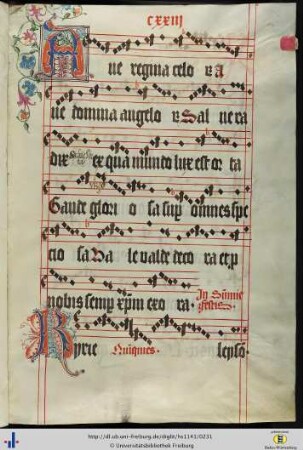 cxxiij
Aue regina celo ꝝ A
ue domina angelo ꝝ Sal ue ra
dix ex qua mundo lux est or ta
Gaude glori o sa sup omnes spe
cio sa Va le valde deco ra et p
nobis semp xpm exo ra. In Sūmis
festis.
Kyrie leyso
http://dl.ub.uni-freiburg.de/diglit/hs1141/0231
© Universitätsbibliothek Freiburg